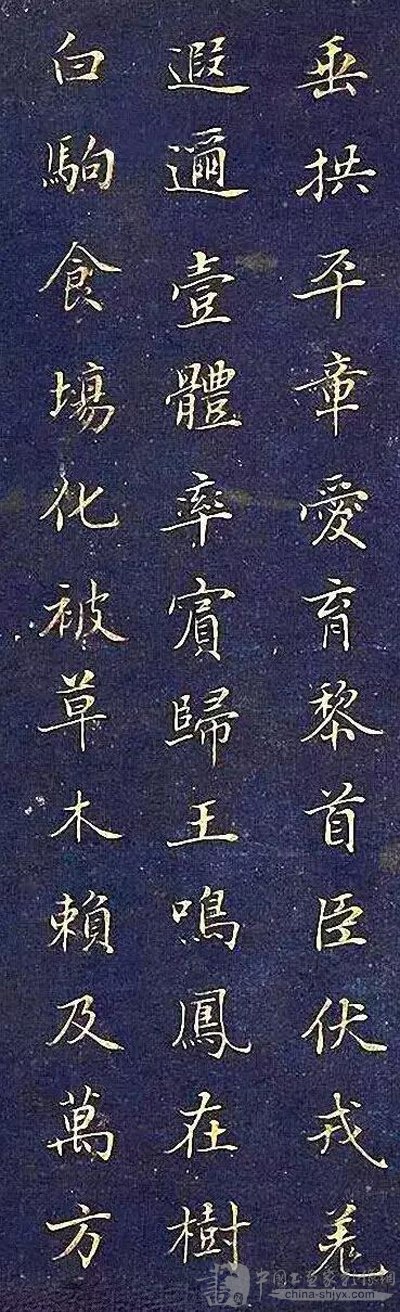 垂拱平章愛育黎首臣伏戎羌
遐邇壹體率賓歸王鳴鳳在樹
白駒食場化被草木賴及萬方
china-shjyx.com